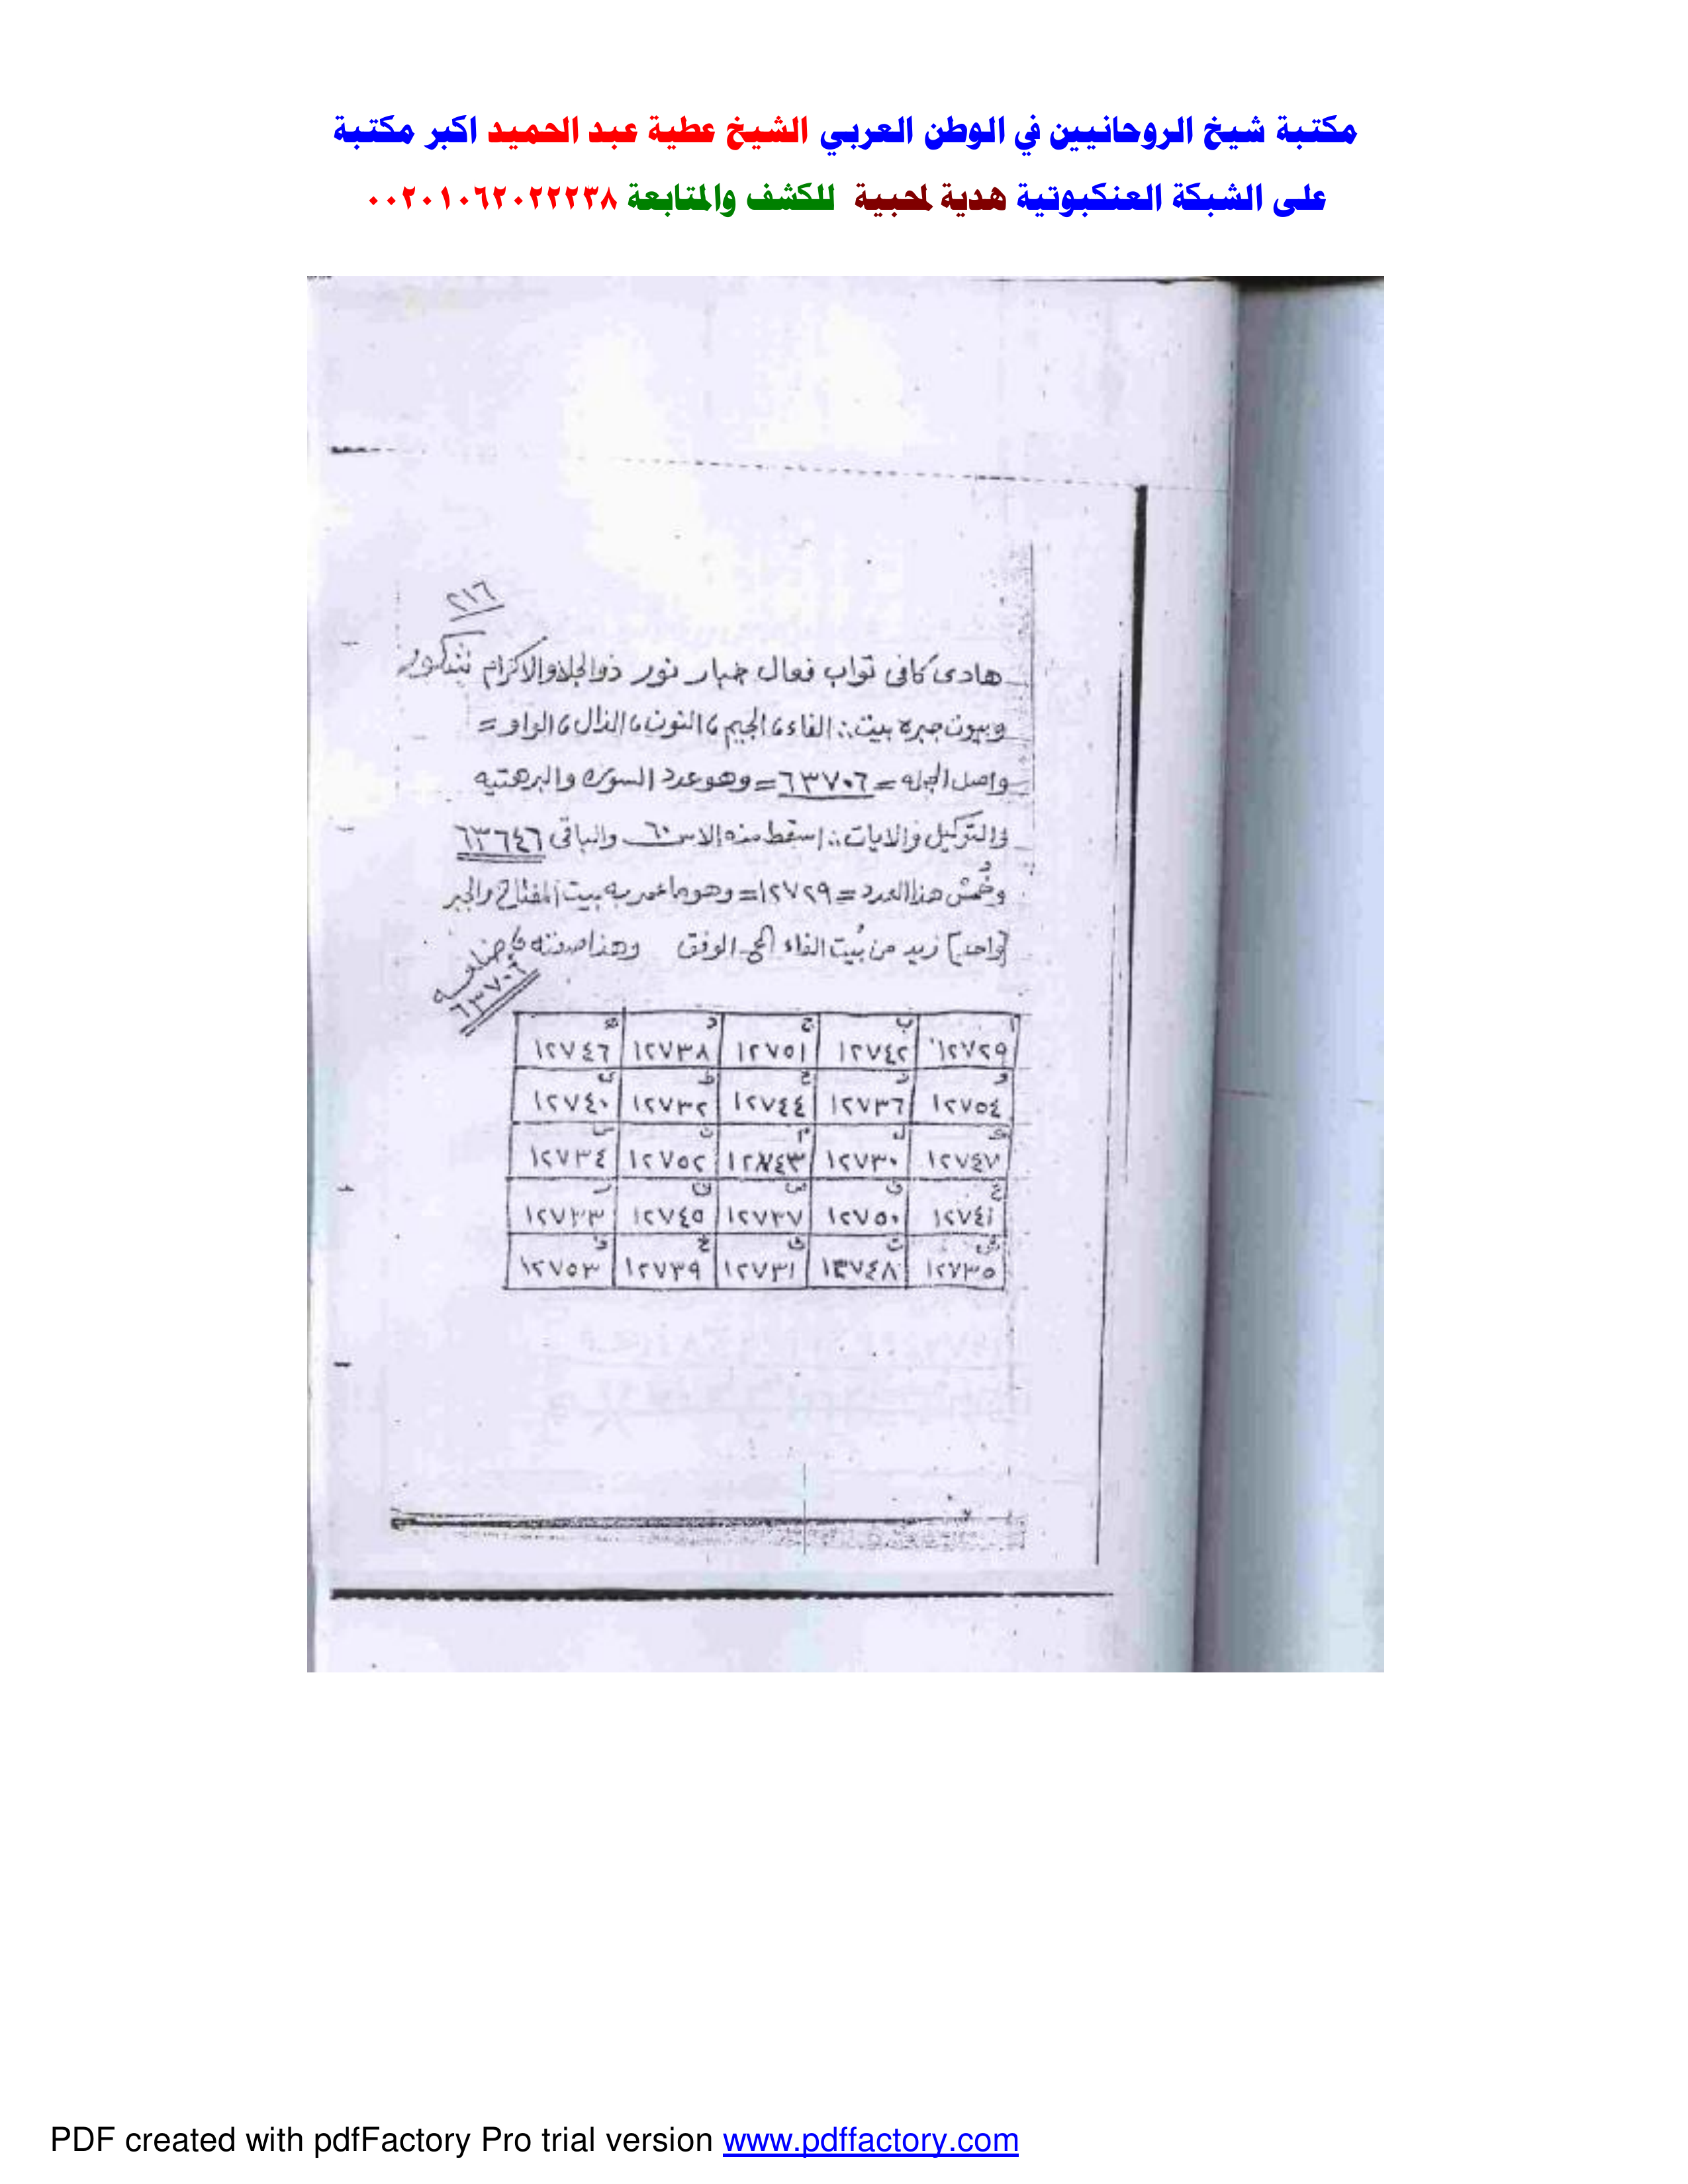 مكتبة شيخ الروحانيين في الوطن العربي الشيخ عطية عبد الحميد اكبر مكتبة
على الشبكة العنكبوتية هدية لمحبية للكشف والمتابعة ٠٠٢٠١٠٦٢٠٢٢٢٣٨
٢١٦
هادى كافى تواب فعال جبار نور ذوالجلاوالاكرام
وبيوت جبره بيت :. الفاء، الجيم، النون، الذال، الواو =
واصل الجمله = ٦٣٧٠٦ = وهو عدد السوره والبرهتيه
والتوكيل والايات :. اسقط منه الاس ٦٠ والباقى ٦٣٦٤٦
وخُمُس هذا العدد = ١٢٧٢٩ = وهو ما عمر به بيت المفتاح والجبر
[واحد] زيد من بُيت الفاء الوفق وهذا صفته
٦٣٧٠٦
ا ب ج د ه
١٢٧٢٩ ١٢٧٤٢ ١٢٧٥١ ١٢٧٣٨ ١٢٧٤٦
و ز ح ط ى
١٢٧٥٤ ١٢٧٣٦ ١٢٧٤٤ ١٢٧٣٢ ١٢٧٤٠
ك ل م ن س
١٢٧٤٧ ١٢٧٣٠ ١٢٧٤٣ ١٢٧٥٢ ١٢٧٣٤
ع ف ص ق ر
١٢٧٤١ ١٢٧٥٠ ١٢٧٣٧ ١٢٧٤٥ ١٢٧٣٣
ش ت ث خ ذ
١٢٧٣٥ ١٢٧٤٨ ١٢٧٣١ ١٢٧٣٩ ١٢٧٥٣
PDF created with pdfFactory Pro trial version www.pdffactory.com